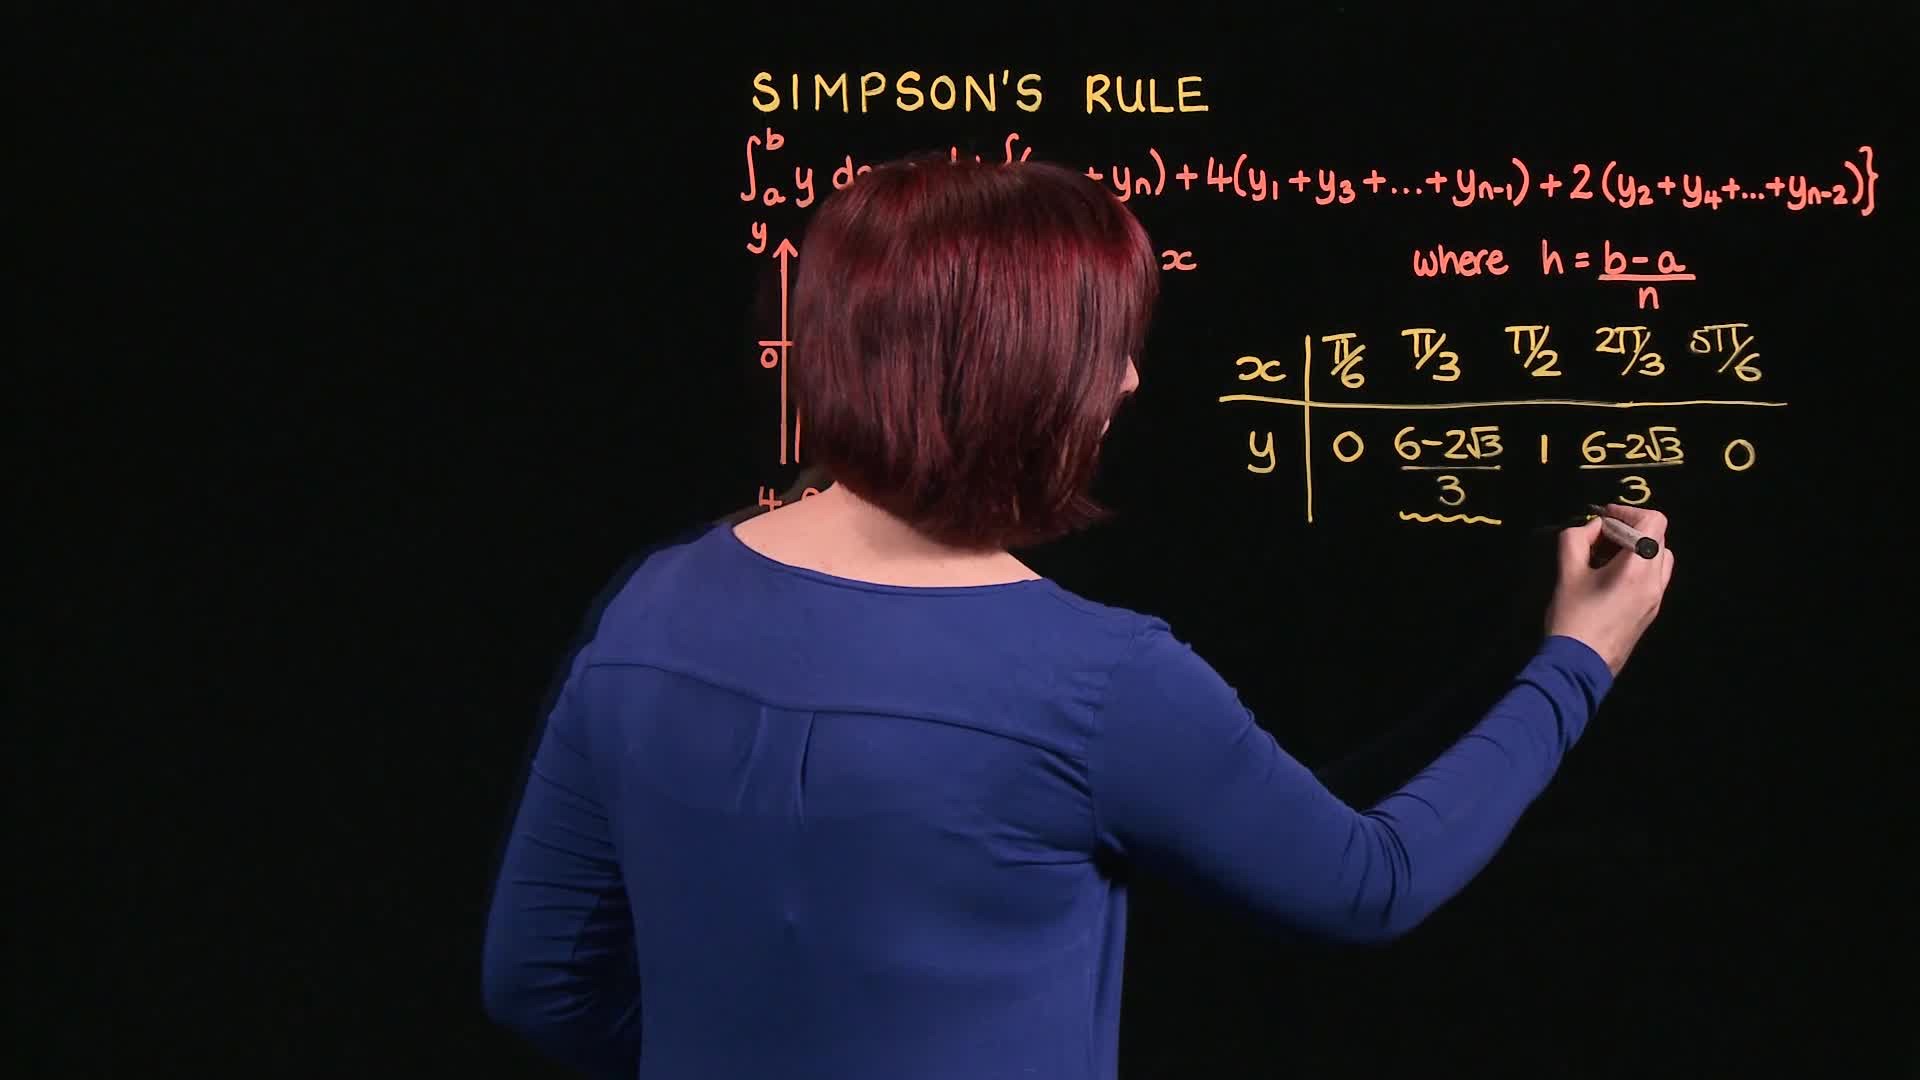 SIMPSON'S RULE
∫ₐᵇ y yₙ) + 4(y₁ + y₃ + ... + yₙ₋₁) + 2(y₂ + y₄ + ... + yₙ₋₂)}
y
x
where h = b - a
n
0
x π/6 π/3 π/2 2π/3 5π/6
y 0 6-2√3 1 6-2√3 0
3 3
4